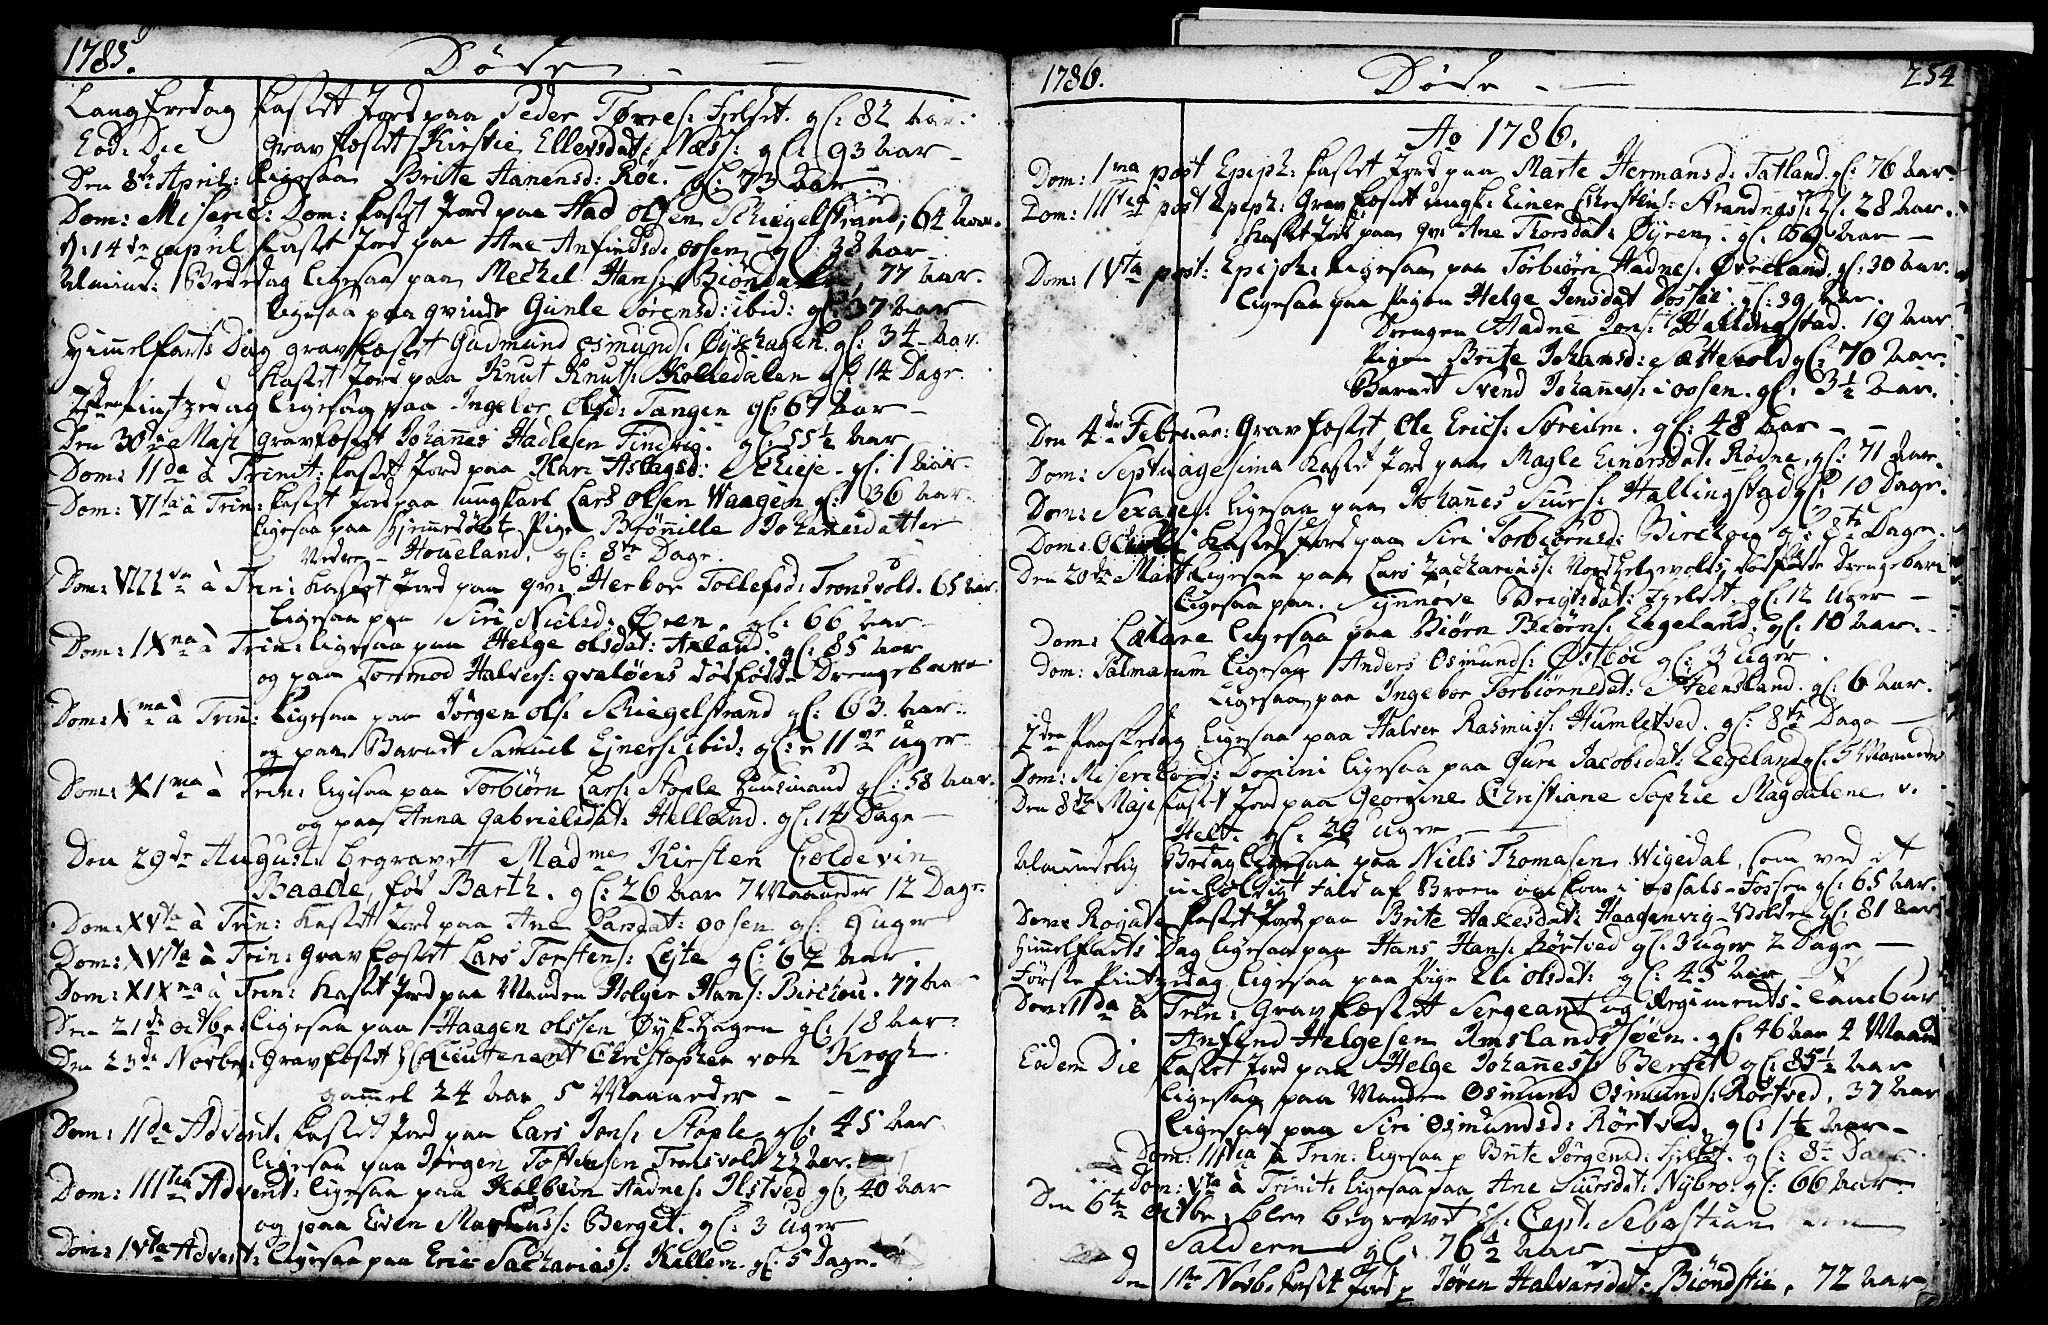 1785.
Døde
Langfredag kastet Jord paa Peder Tøres: Fjelset. gl: 82 Aar.
Eod: Die Gravfæstet Kirstie Ellersdat: Næss: gl: 93 Aar
Den 8de April: ligesaa Brite Hanensd: Røe. gl: 73 Aar
Dom: Miseric: Dom: kastet Jord paa Had Olsen Schiegelstrand, 64 Aar.
d: 14de April kastet Jord paa Ane Anfindsd: Oosen gl: 38 Aar
Almind: Bededag ligesaa paa Mechel Hans: 77 Aar.
ligesaa paa qvinde Gunle Sørensd: ibid: gl: 37 Aar
Himmelfarts Dag gravfæstet Gudmund Osmunds: Øychagen. gl: 34 Aar.
kastet Jord paa Knut Knuts: Kolledalen gl: 14 Dage.
2den Pintzedag ligesaa paa Ingebor Olsd: Tangen gl: 67 Aar
Den 30de Maji Gravfæstet Johannes Hadlesen Tindvig. gl: 55½ Aar
Dom: 11da à Trinit: kastet Jord paa Kari Aslagsd: gl: 1 Aar.
Dom: VIta à Trin: kastet Jord paa ungkarl Lars Olsen Waagen gl: 36 Aar.
ligesaa paa hjemmedøbt Pige Brønnille Johannesdatter
Nedre Houeland. gl: 8te Dage
Dom: VIIIva à Trin: kastet Jord paa qv: Herbor Tollefsd: Tronsvold. 65 Aar.
ligesaa paa Siri Nielsd: Øren. gl: 66 Aar
Dom: IXna à Trin: ligesaa paa Helge Olsdat: Axland. gl: 85 Aar
og paa Tormod Halvers: qvaløens dødfødde Drengebarn
Dom: Xma à Trin: ligesaa paa Jørgen Ols: Schiegelstrand gl: 63. Aar.
og paa Barnet Samuel Ejners: ibid: gl: 11ve Uger
Dom: XIma à Trin: ligesaa paa Torbiørn Lars: Stople Huusmand gl: 58 Aar.
og paa Anna Gabrielsdat: Helland. gl: 14 Dage
Den 29de August: begravet Madme Kirsten Coldevin
Baade, fød Barth. gl: 26 Aar 7 Maaneder 12 Dage
Dom: XVta à Trin: kastet Jord paa Ane Larsdat: Oosen gl: 9 Uger
Dom: XVIta à Trin: Gravfæstet Lars Torstens: Lejte gl: 67 Aar.
Dom: XIXna à Trin: kastet Jord paa Manden Holger Hans: Birchou. 77 Aar
Den 21de Octbr: ligesaa paa Haagen Olssen Øykhagen gl: 18 Aar.
Den 23de Novbr: Gravfæstet Hr Lieutenant Christopher von Krogh
gammel 24 Aar 5 Maaneder
Dom: 11da Advent: kastet Jord paa Lars Jons: Stople gl: 45 Aar.
ligesaa paa Jørgen Tostensen Tronsvold 22 Aar.
Dom: IIItia Advent: ligesaa paa Kolbein Aadnes: Ilstved gl: 40 Aar
og paa Even Markuss: Berget. gl: 3 Uger
Dom: IVta Advent: ligesaa paa Eric Sachariass: Kallem. gl: 5 Dage.
1786.
Døde
254
Ao 1786.
Dom: 1ma post Epiph: kastet Jord paa Marte Hermansd: Tatland. gl: 76 Aar.
Dom: IIItia post Epiph: Gravfæstet ungk: Einer Christens: gl: 28 Aar.
kastet Jord paa qv: Ane Thorsdat: Øyren. gl: 69 Aar
Dom: IVta post: Epiph: ligesaa paa Torbiørn Hadnes: Øvreland. gl: 30 Aar.
ligesaa paa Pigen Helge Jensdat gl: 39 Aar.
Drengen Aadne Jons: Hallingstad. 19 Aar
Pigen Brite Johansd: Sættevold gl: 70 Aar.
Barnet Svend Johaness: i Oosen. gl: 3½ Aar.
Den 4de Februar: Gravfæstet Ole Erics: Streilm. gl: 48 Aar
Dom: Septuagesima kastet Jord paa Magle Einersdat: Rødne. gl: 71 Aar.
Dom: Sexages: ligesaa paa Johanes Siurs: Hallingstad gl: 10 Dage.
Dom: Oculi kastet Jord paa Siri Torbiørnsd: Birchou gl: 8te Dage.
Den 20de Mart ligesaa paa Lars Zacharias: Nordhelgevolds dødfødte Drengebarn
ligesaa paa Synnøve Brigtsdat: Fjelset gl: 12 Uger
Dom: Lætare ligesaa paa Biørn Biørns: Egeland. gl: 10 Aar.
Dom: Palmarum ligesaa Anders Osmunds: Østbøe gl: 3 Uger
ligesaa paa Ingebor Torbiørnsdat: Steensland. gl: 6 Aar.
2den Paaskedag ligesaa paa Halver Rasmuss: Humletved. gl: 8te Dage
Dom: Misericord: Domini ligesaa paa Guri Jacobsdat: Egeland gl: 5 Maaneder
Den 8de Maji kastet Jord paa Georgine Christiane Sophie Magdalene v.
Helt. gl: 20 Uger
Almindelig Bedag ligesaa paa Niels Thomasen Wigedal, som ved et
u-heldigt fald af Broen omkom i Opsals-Fossen gl: 65 Aar.
Dom: Rogate kastet Jord paa Brite Hakesdat: Haagenvig-Volden gl: 81 Aar
Himmelfarts Dag ligesaa paa Hans Hans: Rørtved gl: 3 Uger 2 Dage
Første Pintzedag ligesaa paa Pige Eli Olsdat: gl: 45 Aar
Dom: 11da à Trin: Gravfæstet Sergeant og Regiments-Tambur
Anfind Helgesen Amslandssøen. gl: 46 Aar 4 Maand
Eodem Die kastet Jord paa Helge Johaness: Berget gl: 85½ Aar
ligesaa paa Manden Osmund Osmunds: Rørtved, 37 Aar
ligesaa paa Siri Osmundsd: Rørtved, gl: 1½ Aar
Dom: IIItia à Trin: ligesaa p Brite Jørgensd: Fjelset. gl: 8te Dage
Dom: Vta à Trinit: ligesaa paa Ane Siursdat: Nybro: gl: 66 Aar.
Den 6te Octbr: blev begravet Hr: Capt: Sebastian von
Saldern gl: 76½ Aar
Den 11te Novb: kastet Jord p Jøren Halvarsdat: Biøndstie, 72 Aar